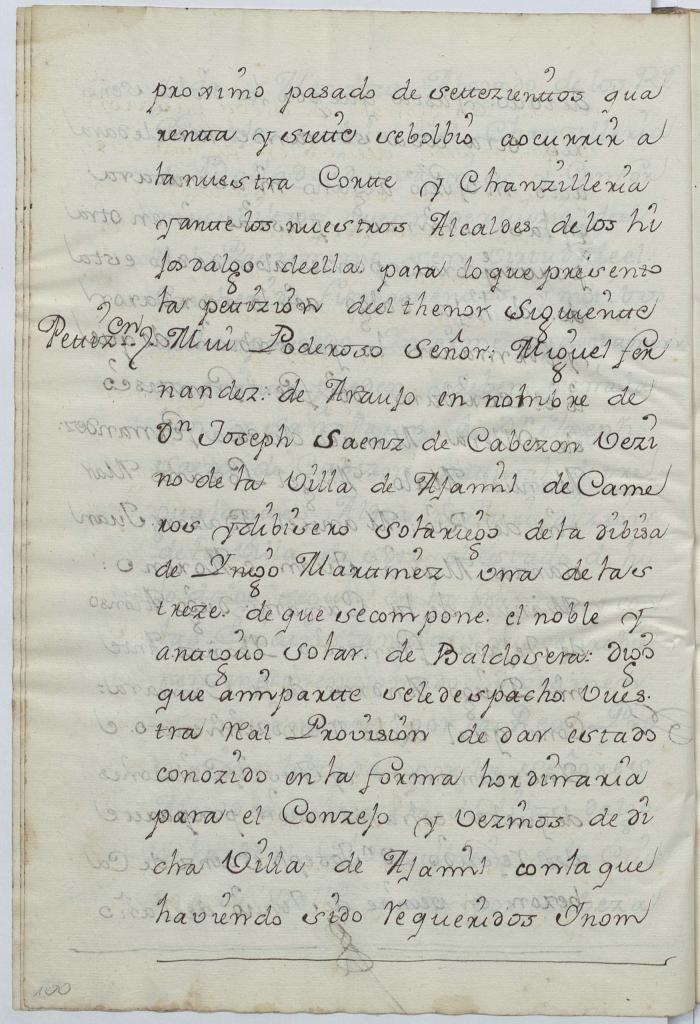 proximo pasado de settezienttos qua
rentta y siette sebolbio aocurrir a
la nuestra Cortte y Chanzilleria
yantte los nuestros Alcaldes de los hi
josdalgo deella para lo que presento
la petizion del thenor siguientte
Pettizon) Mui Poderoso señor: Miguel fer
nandez: de Araujo en nombre de
Dn Joseph Saenz de Cabezon vezi
no de la Villa de Ajamil de Came
ros ydibisero solariego dela dibisa
de Ynigo Martinez vna de las
treze. de que secompone. el noble y
antiguo solar. de Baldosera: digo
que amipartte sele despacho vues.
tra Real Provision de dar estado
conozido en la forma hordinaria
para el Conzejo y vezinos de di
cha Villa de Ajamil conla que
haviendo sido requeridos Ynom
100